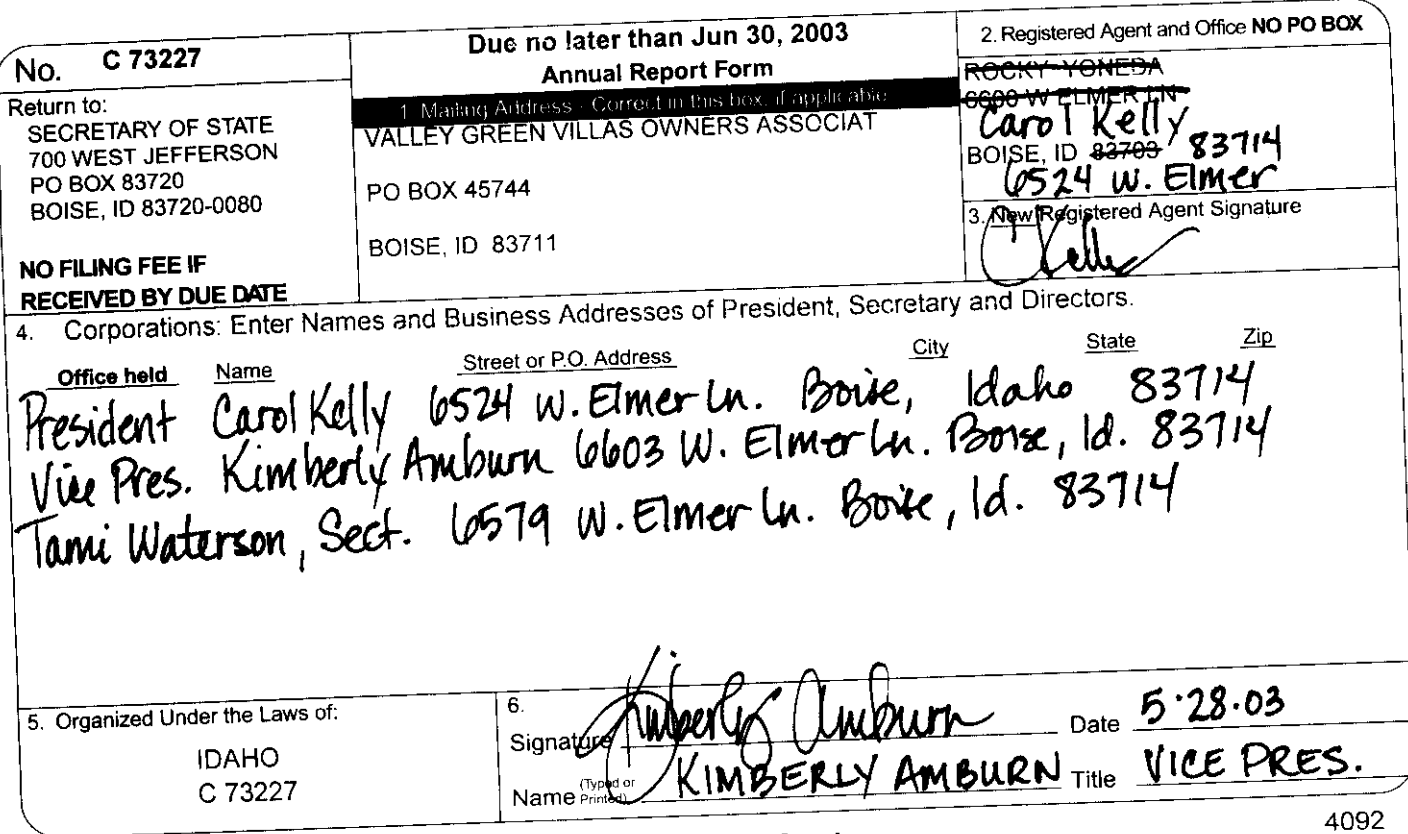 No. C 73227
Return to:
SECRETARY OF STATE
700 WEST JEFFERSON
PO BOX 83720
BOISE, ID 83720-0080
NO FILING FEE IF
RECEIVED BY DUE DATE
Due no later than Jun 30, 2003
Annual Report Form
1. Mailing Address - Correct in this box, if applicable
VALLEY GREEN VILLAS OWNERS ASSOCIAT
PO BOX 45744
BOISE, ID 83711
2. Registered Agent and Office NO PO BOX
ROCKY YONEDA
6600 W ELMER LN
Carol Kelly
BOISE, ID 83703 83714
6524 W. Elmer
3. New Registered Agent Signature
C Kelly
4. Corporations: Enter Names and Business Addresses of President, Secretary and Directors.
Office held Name Street or P.O. Address City State Zip
President Carol Kelly 6524 W. Elmer Ln. Boise, Idaho 83714
Vice Pres. Kimberly Amburn 6603 W. Elmer Ln. Boise, Id. 83714
Tami Waterson, Sect. 6579 W. Elmer Ln. Boise, Id. 83714
5. Organized Under the Laws of:
IDAHO
C 73227
6.
Signature Kimberly Amburn Date 5·28·03
Name (Typed or Printed) KIMBERLY AMBURN Title VICE PRES.
4092